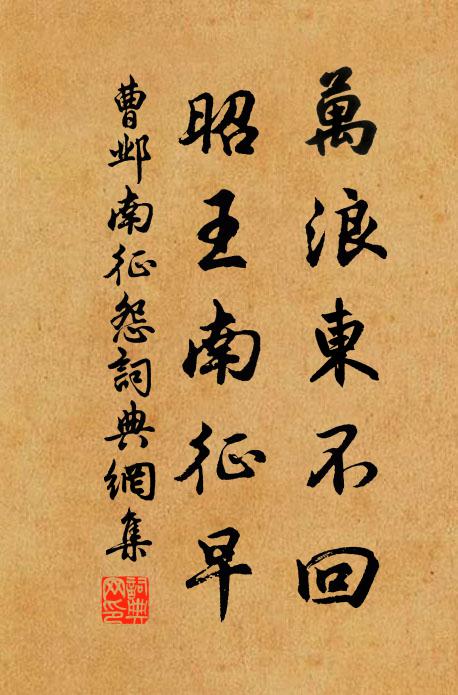 萬浪東不回
昭王南征早
曹邺南征怨詞典網集
詞典網印